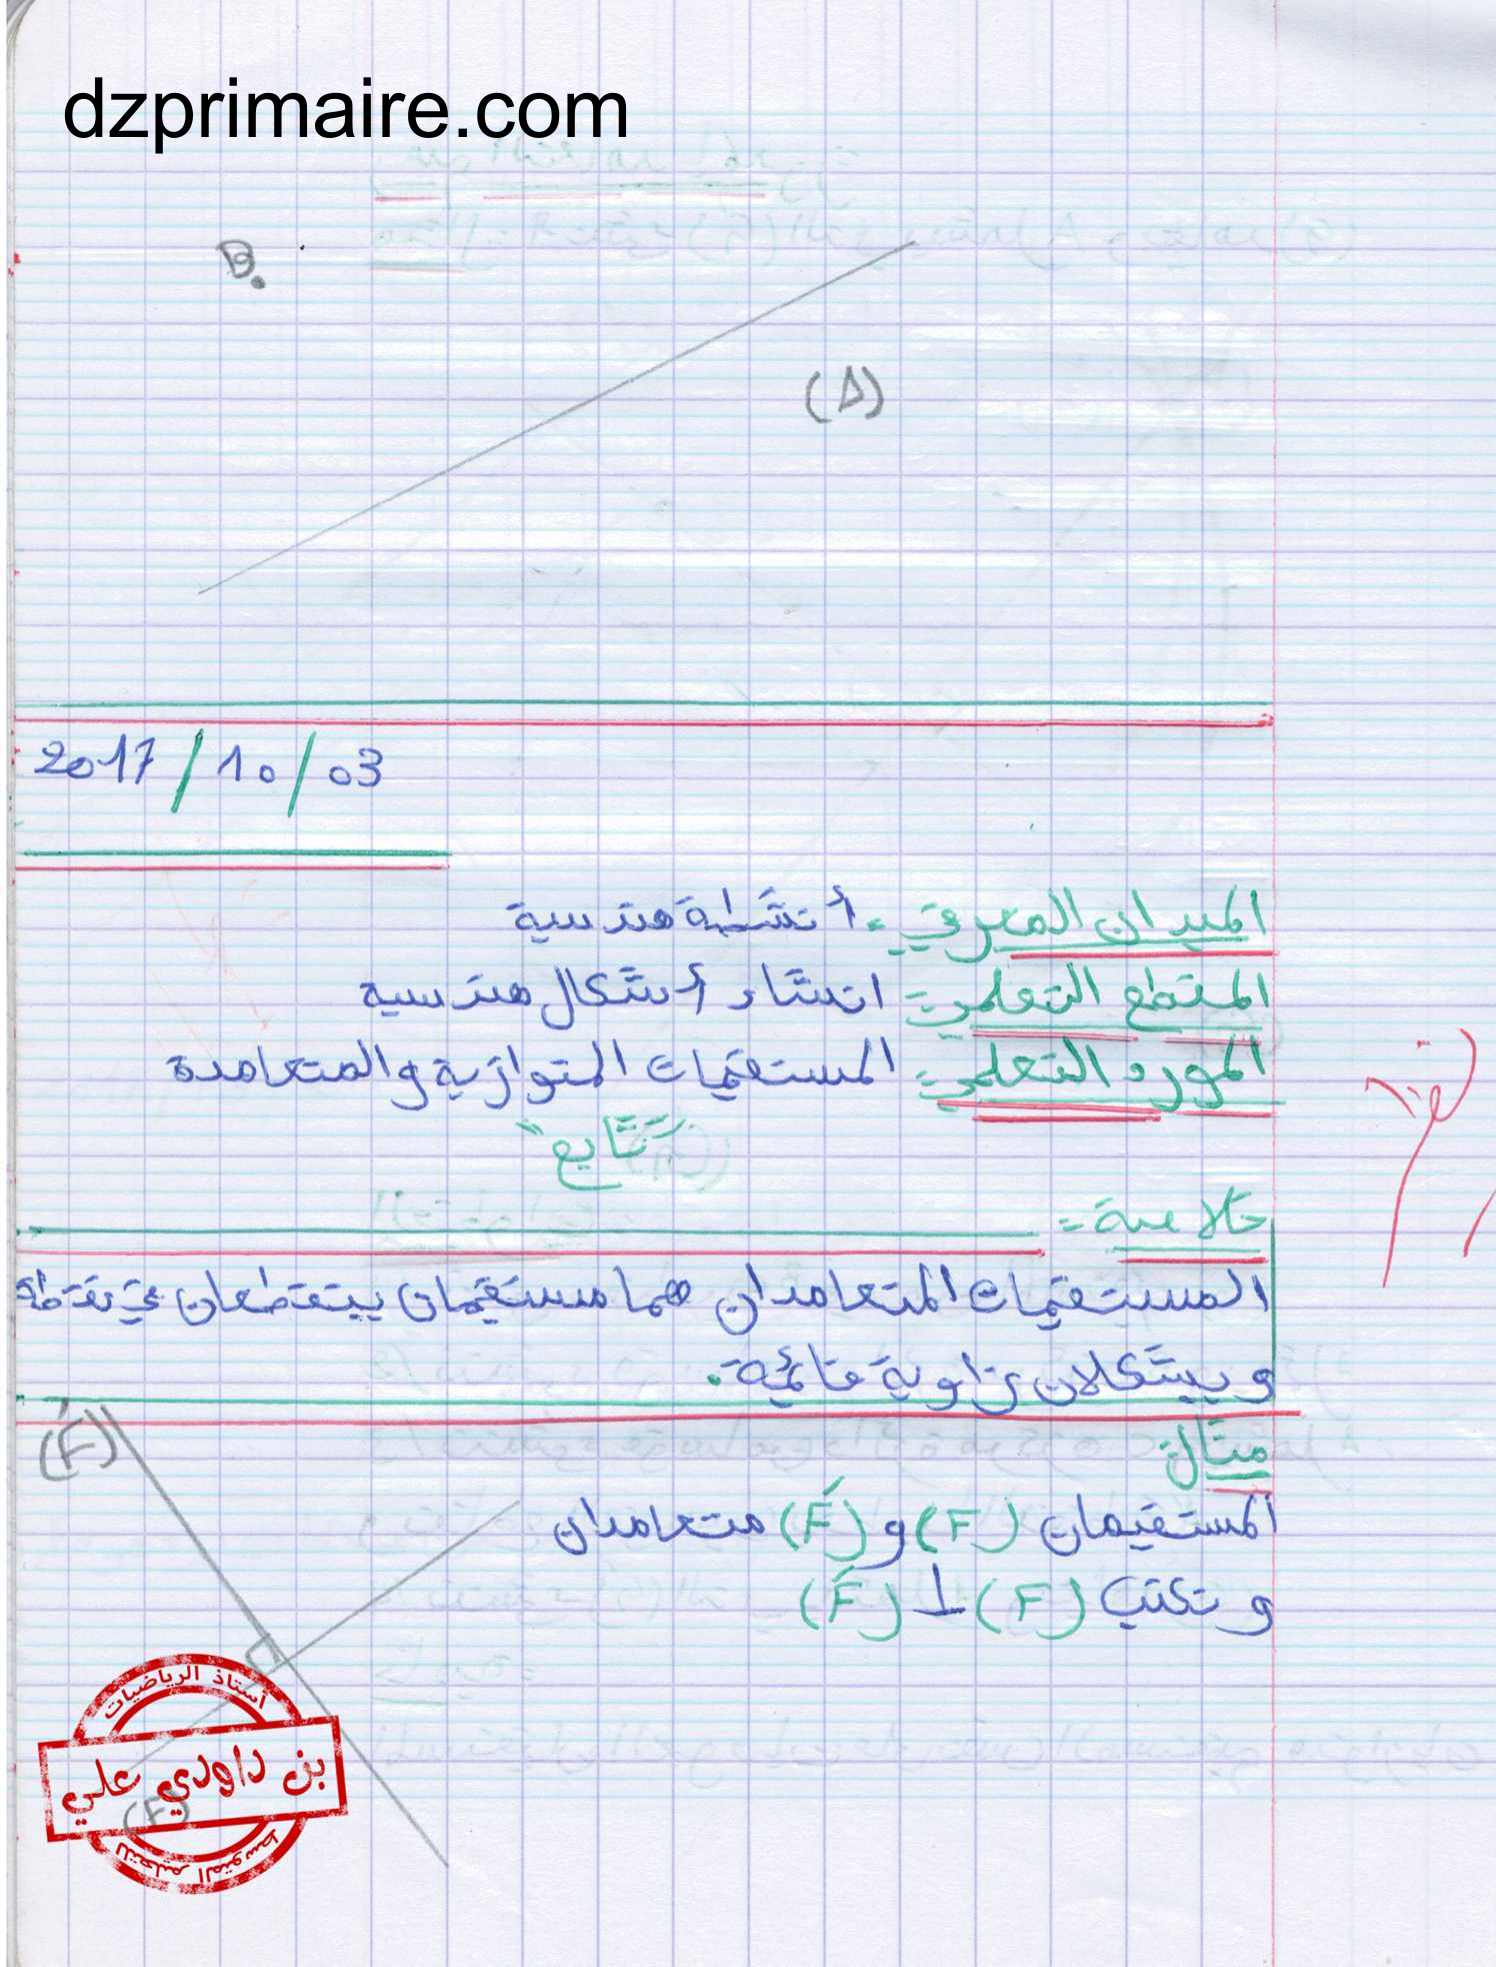 dzprimaire.com
B.
(Δ)
2017/10/03
الميدان المعرفي: أنشطة هندسية
المقطع التعلمي: انشاء أشكال هندسية
المورد التعلمي: المستقيمات المتوازية والمتعامدة
"تابع"
خلاصة:
المستقيمات المتعامدان هما مستقيمان يتقطعان في نقطة
ويشكلان زاوية قائمة.
مثال:
المستقيمان (F) و (F́) متعامدان
و نكتب (F) ⊥ (F́)
(F́)
(F)
أستاذ الرياضيات
بن داودي علي
للتعليم المتوسط